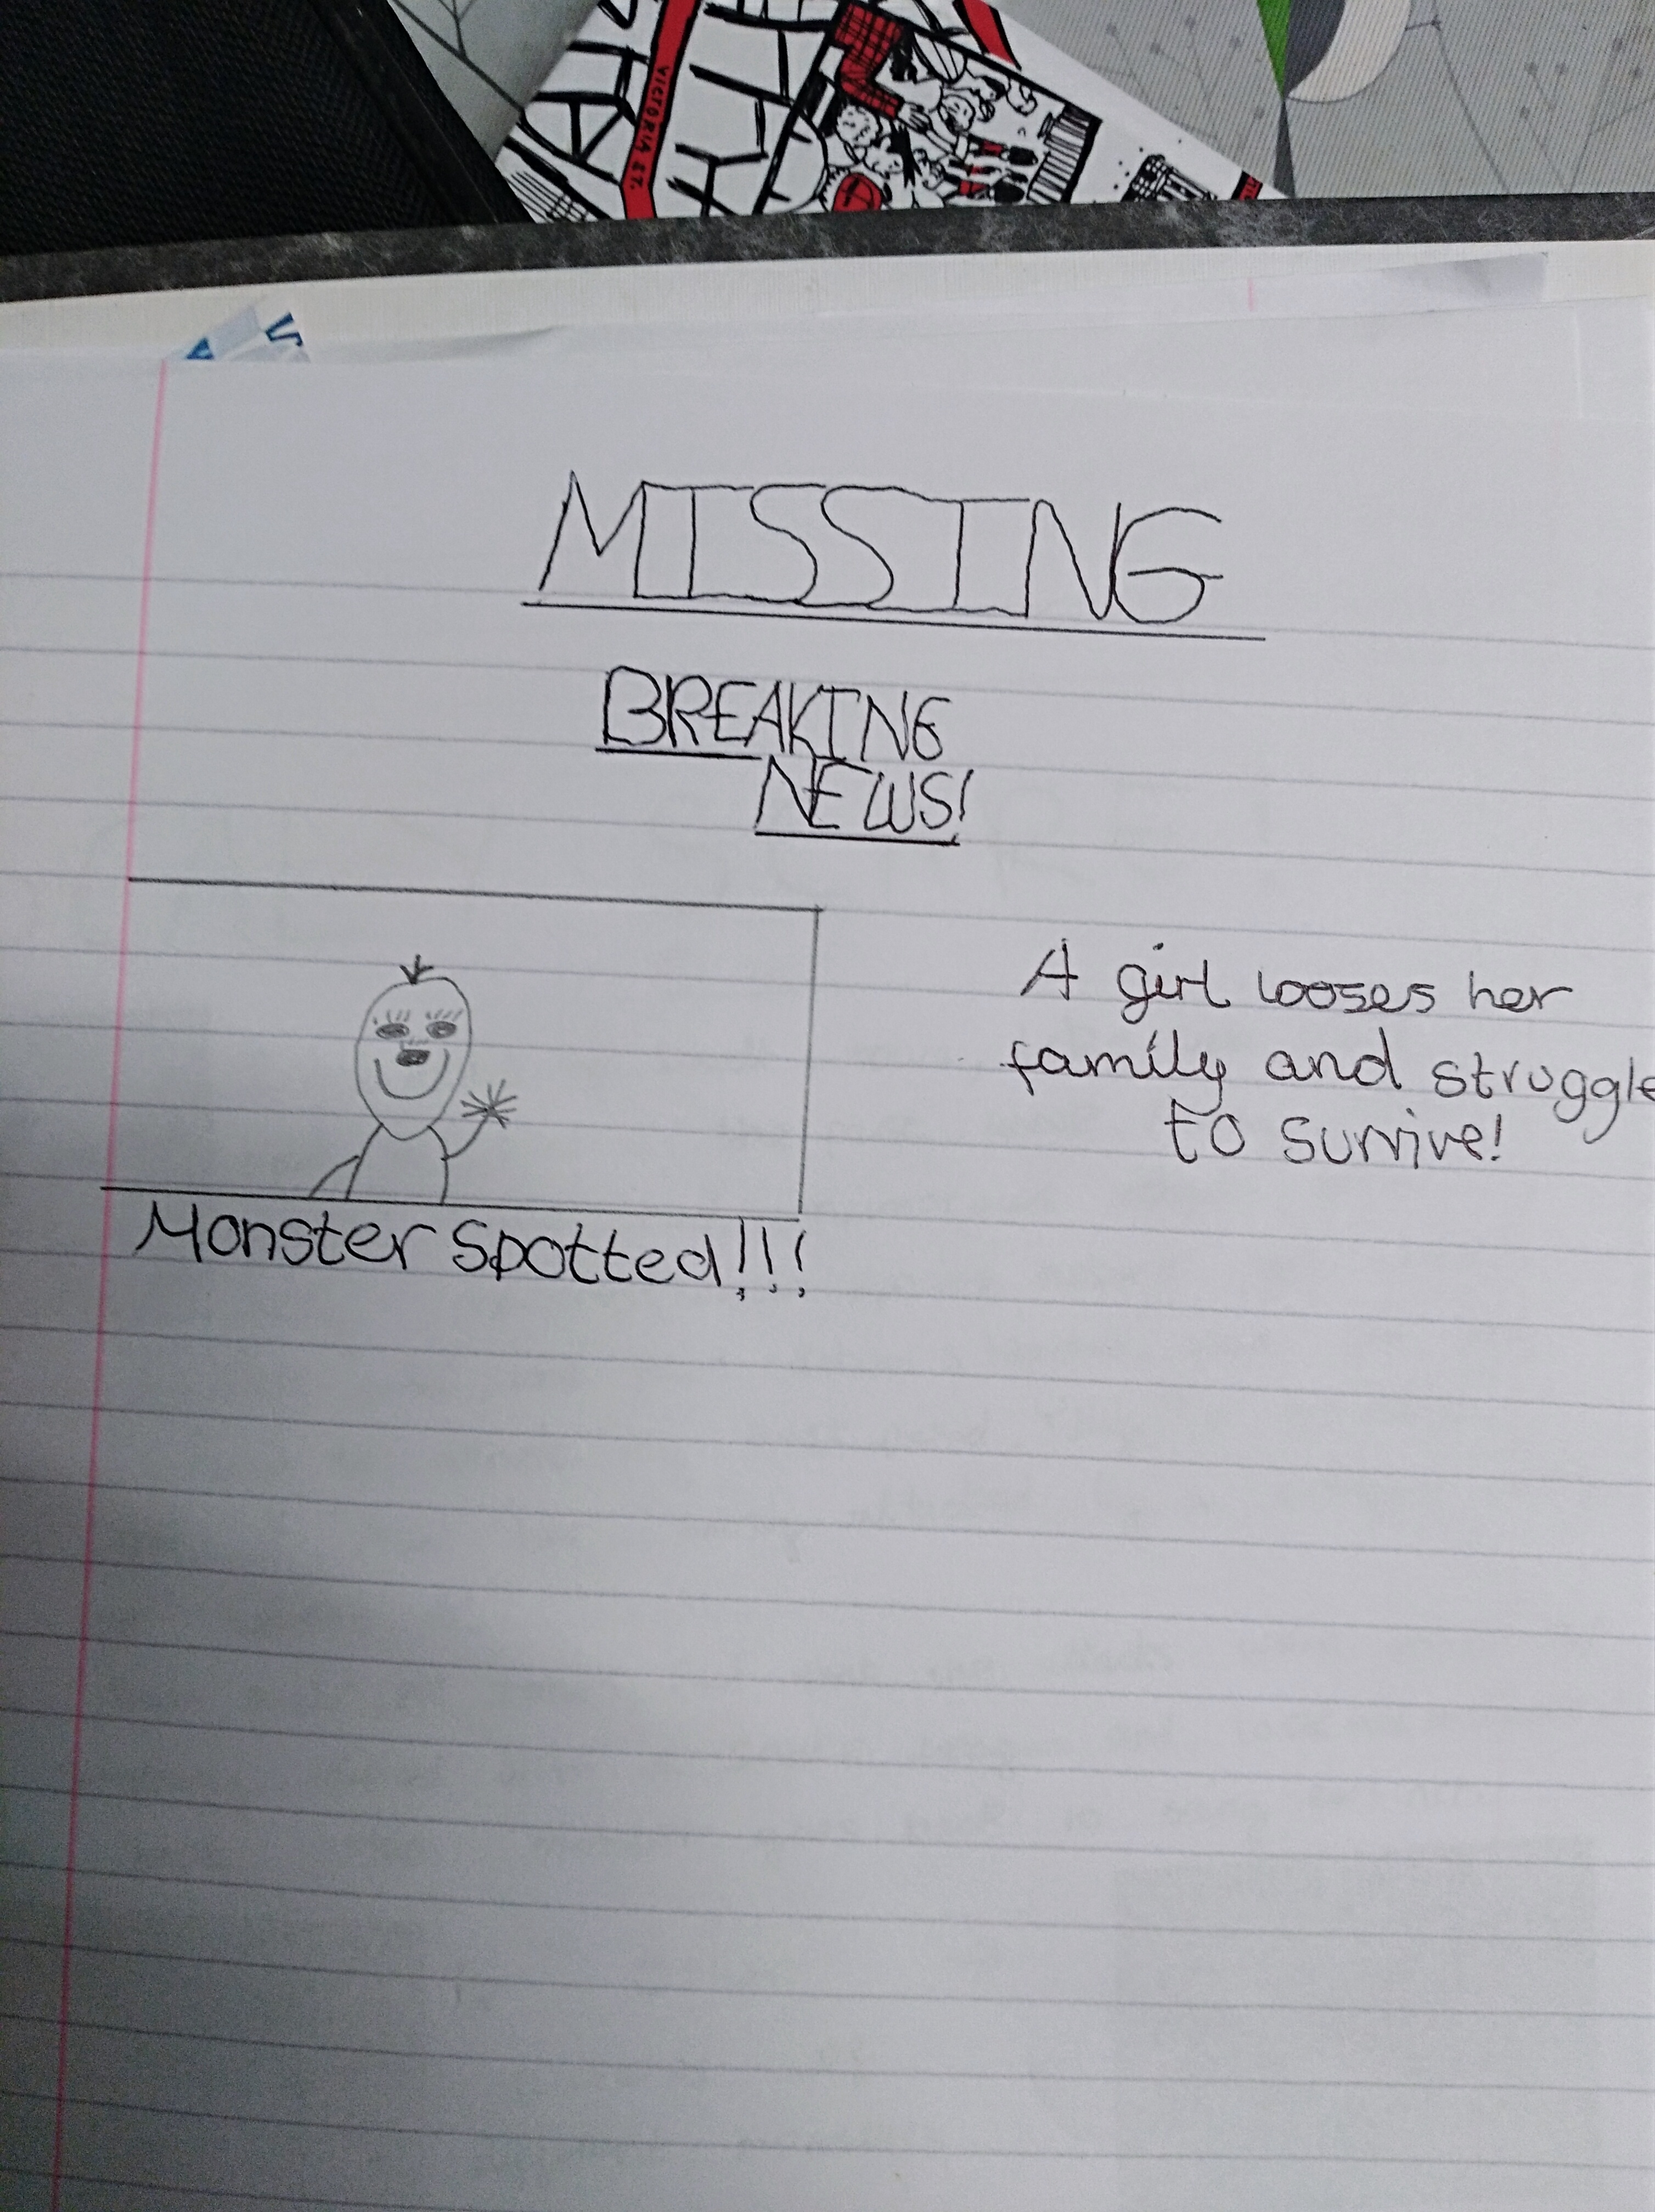 VICTORIA ST.
MISSING
BREAKING
NEWS!
A girl looses her
family and struggle
to survive!
Monster Spotted!!!